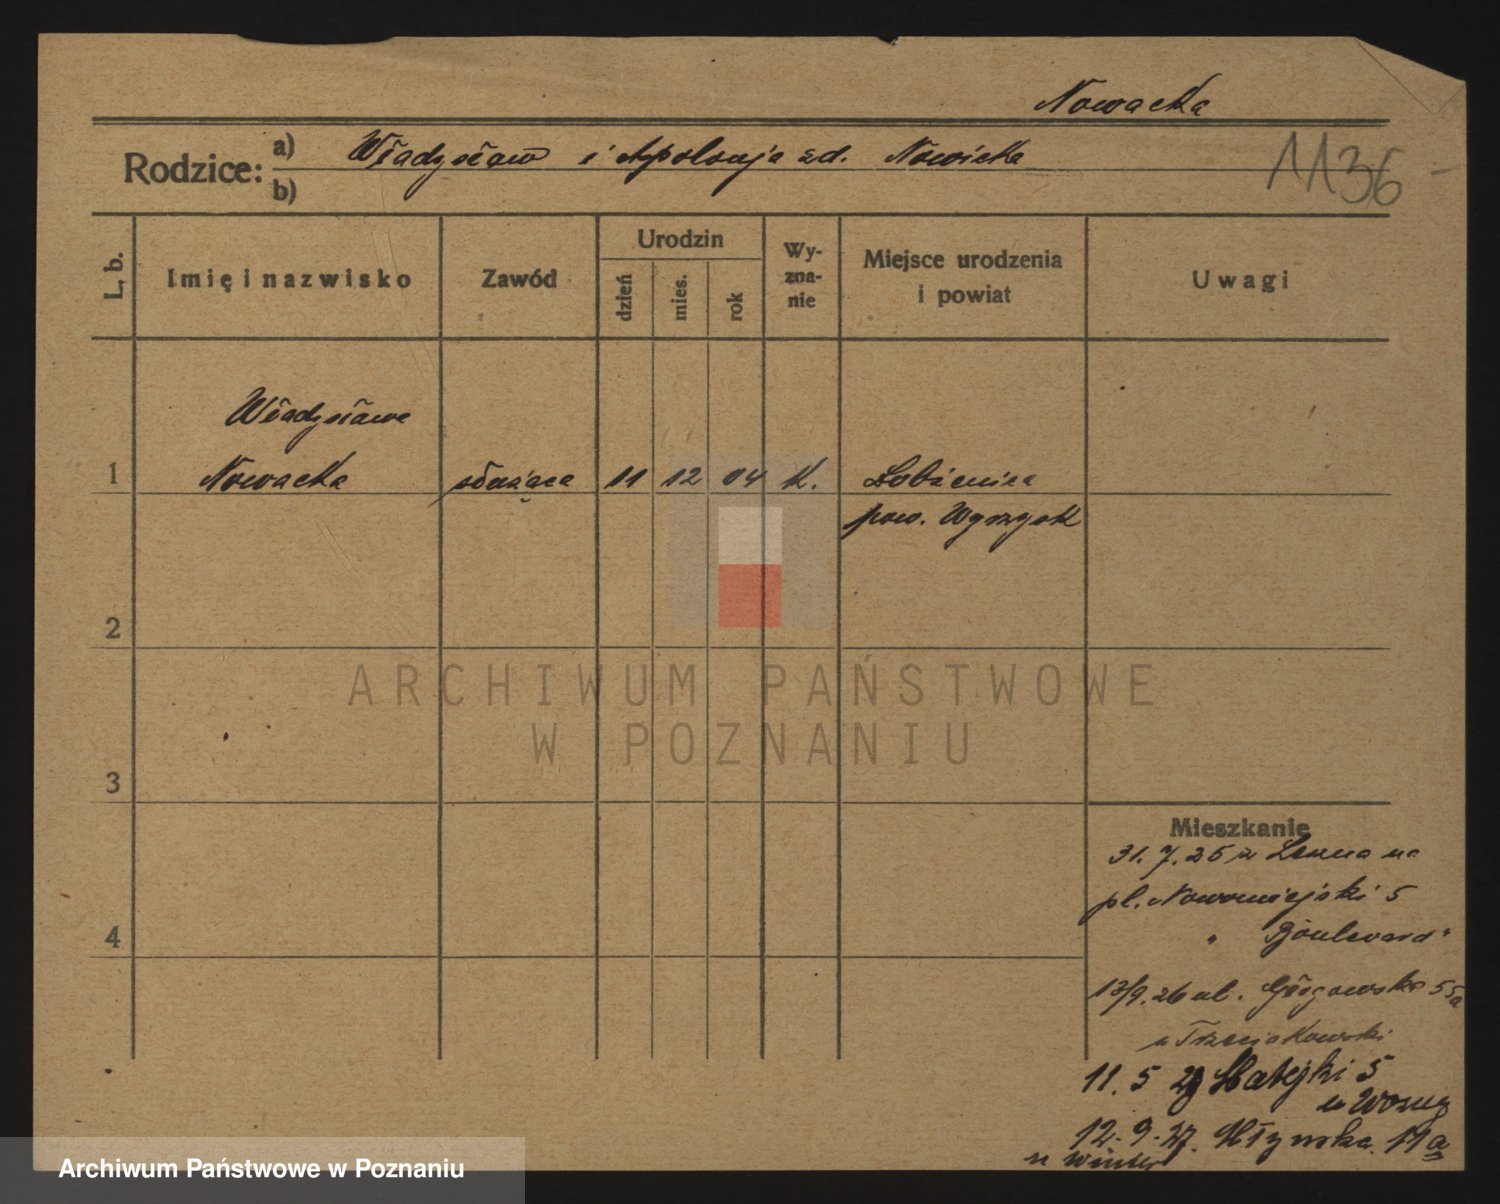 Nowacka
Rodzice: a) Władysław i Apolonja zd. Nowicka
b)
1136
L. b.
Imię i nazwisko
Zawód
Urodzin
dzień
mies.
rok
Wy-
zna-
nie
Miejsce urodzenia
i powiat
Uwagi
Władysława
1 Nowacka służąca 11 12 04 K. Łobżenica
pow. Wyrzysk
2
ARCHIWUM PAŃSTWOWE
W POZNANIU
3
Mieszkanie
31.7.25 z Leszna na
pl. Nowomiejski 5
4
" Boulevard"
13/9.26 ul. Głogowska 55a
u Trzeciakowski
11.5 27 Matejki 5
u
12.9.27. Młyńska 11a
u Winter
Archiwum Państwowe w Poznaniu